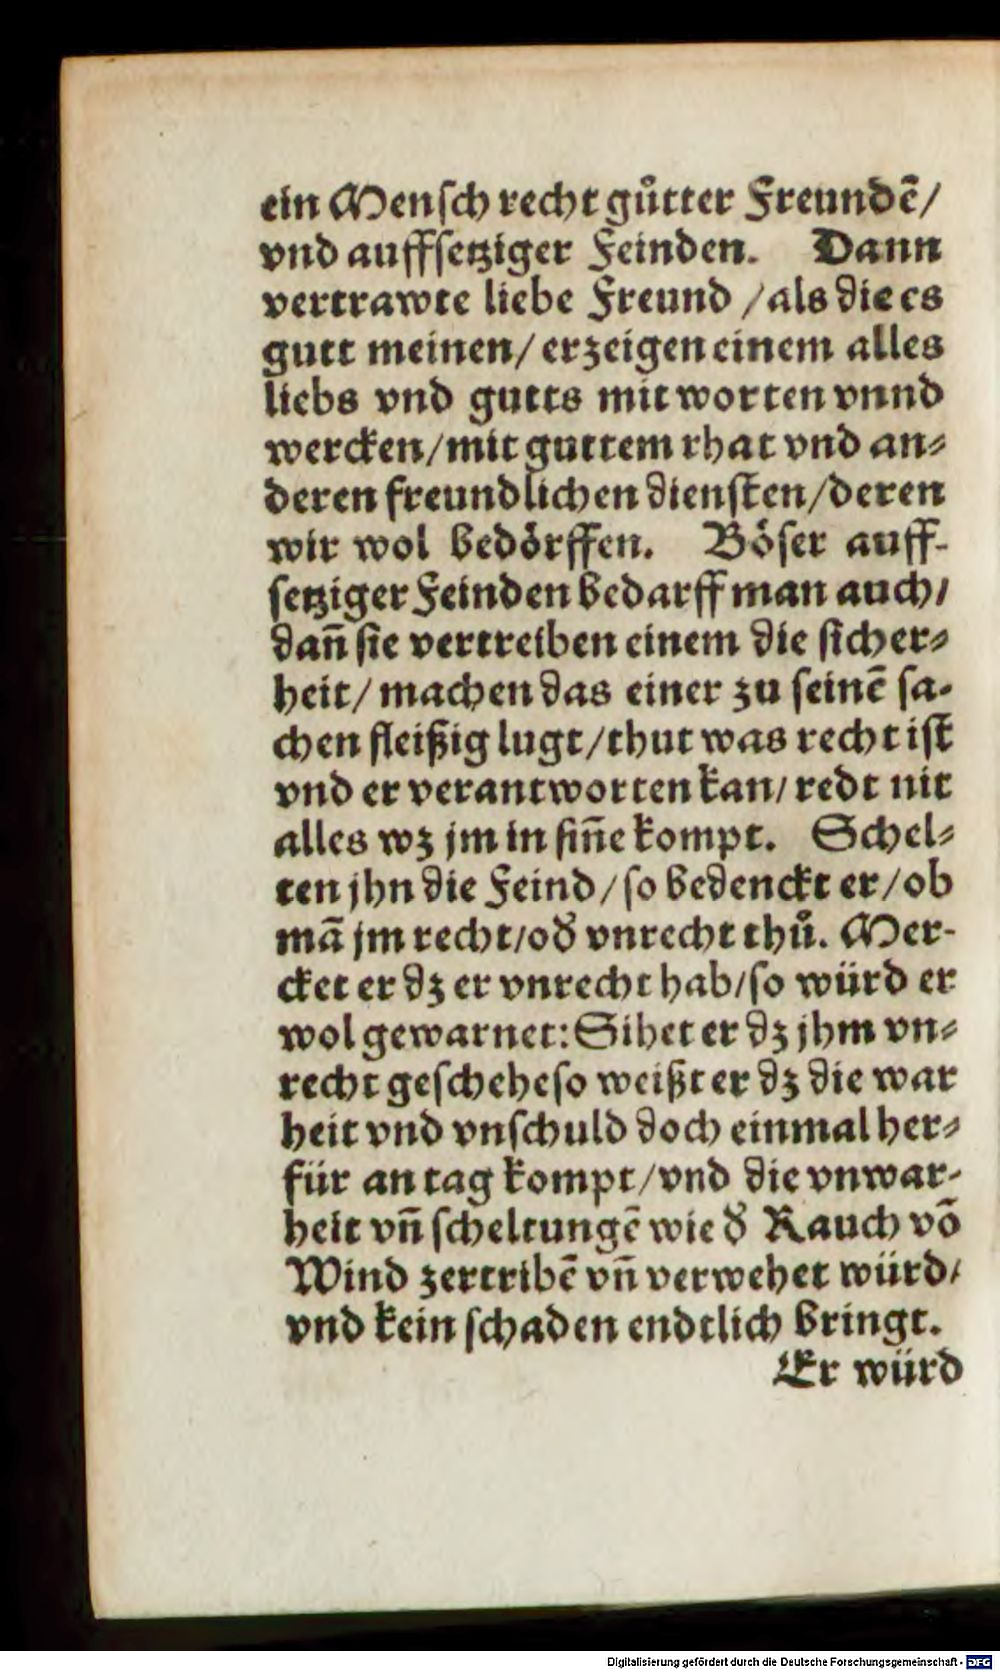 ein Menſch recht gůtter Freundē/
vnd auffſetziger Feinden. Dann
vertrawte liebe Freund / als die es
gutt meinen / erzeigen einem alles
liebs vnd gutts mit worten vnnd
wercken / mit guttem rhat vnd an⸗
deren freundlichen dienſten / deren
wir wol bedoͤrffen. Boͤſer auff-
ſetziger Feinden bedarff man auch /
dañ ſie vertreiben einem die ſicher⸗
heit / machen das einer zu ſeinē ſa-
chen fleißig lugt / thut was recht iſt
vnd er verantworten kan / redt nit
alles wz jm in ſiñe kompt. Schel⸗
ten jhn die Feind / ſo bedenckt er / ob
mā jm recht / oð vnrecht thů. Mer-
cket er dz er vnrecht hab / ſo würd er
wol gewarnet: Sihet er dz jhm vn⸗
recht geſchehe ſo weißt er dz die war
heit vnd vnſchuld doch einmal her⸗
für an tag kompt / vnd die vnwar-
heit vñ ſcheltungē wie ð Rauch vō
Wind zertribē vñ verwehet würd /
vnd kein ſchaden endtlich bringt.
Er würd
Digitalisierung gefördert durch die Deutsche Forschungsgemeinschaft - DFG